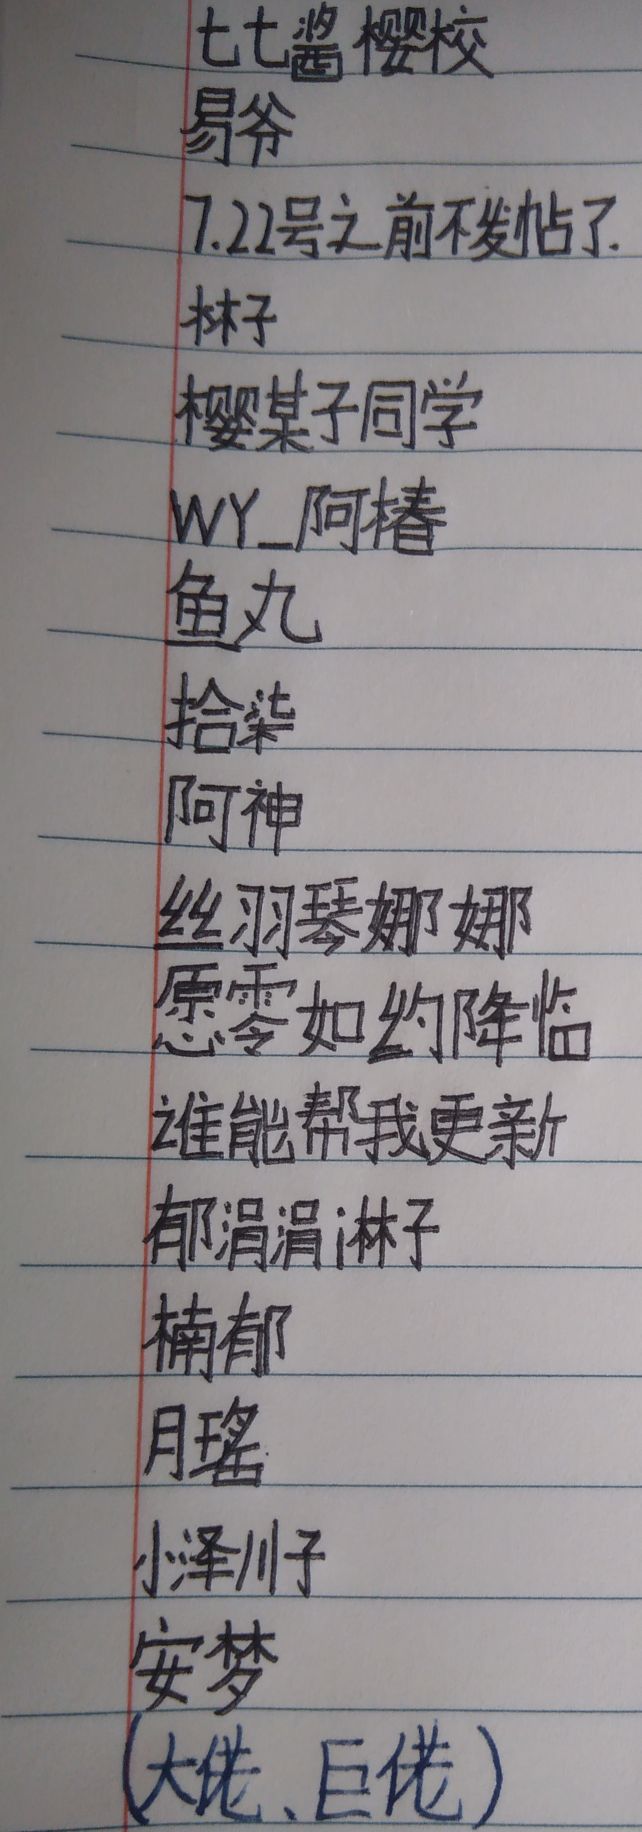 七七酱樱校
易爷
7.22号之前不发帖了.
林子
樱某子同学
WY_阿椿
鱼丸
拾柒
阿神
丝羽琴娜娜
愿零如约降临
谁能帮我更新
郁涓涓淋子
楠郁
月瑤
小泽川子
安梦
(大佬、巨佬)